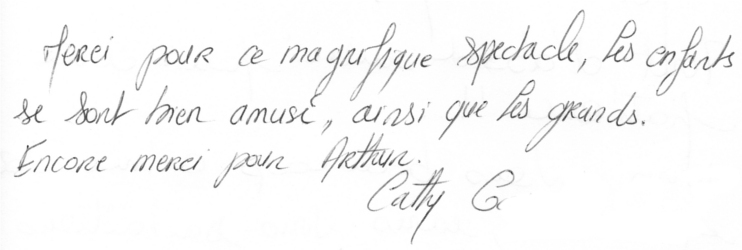 Merci pour ce magnifique spectacle, les enfants
se sont bien amusé, ainsi que les grands.
Encore merci pour Arthur.
Catty G